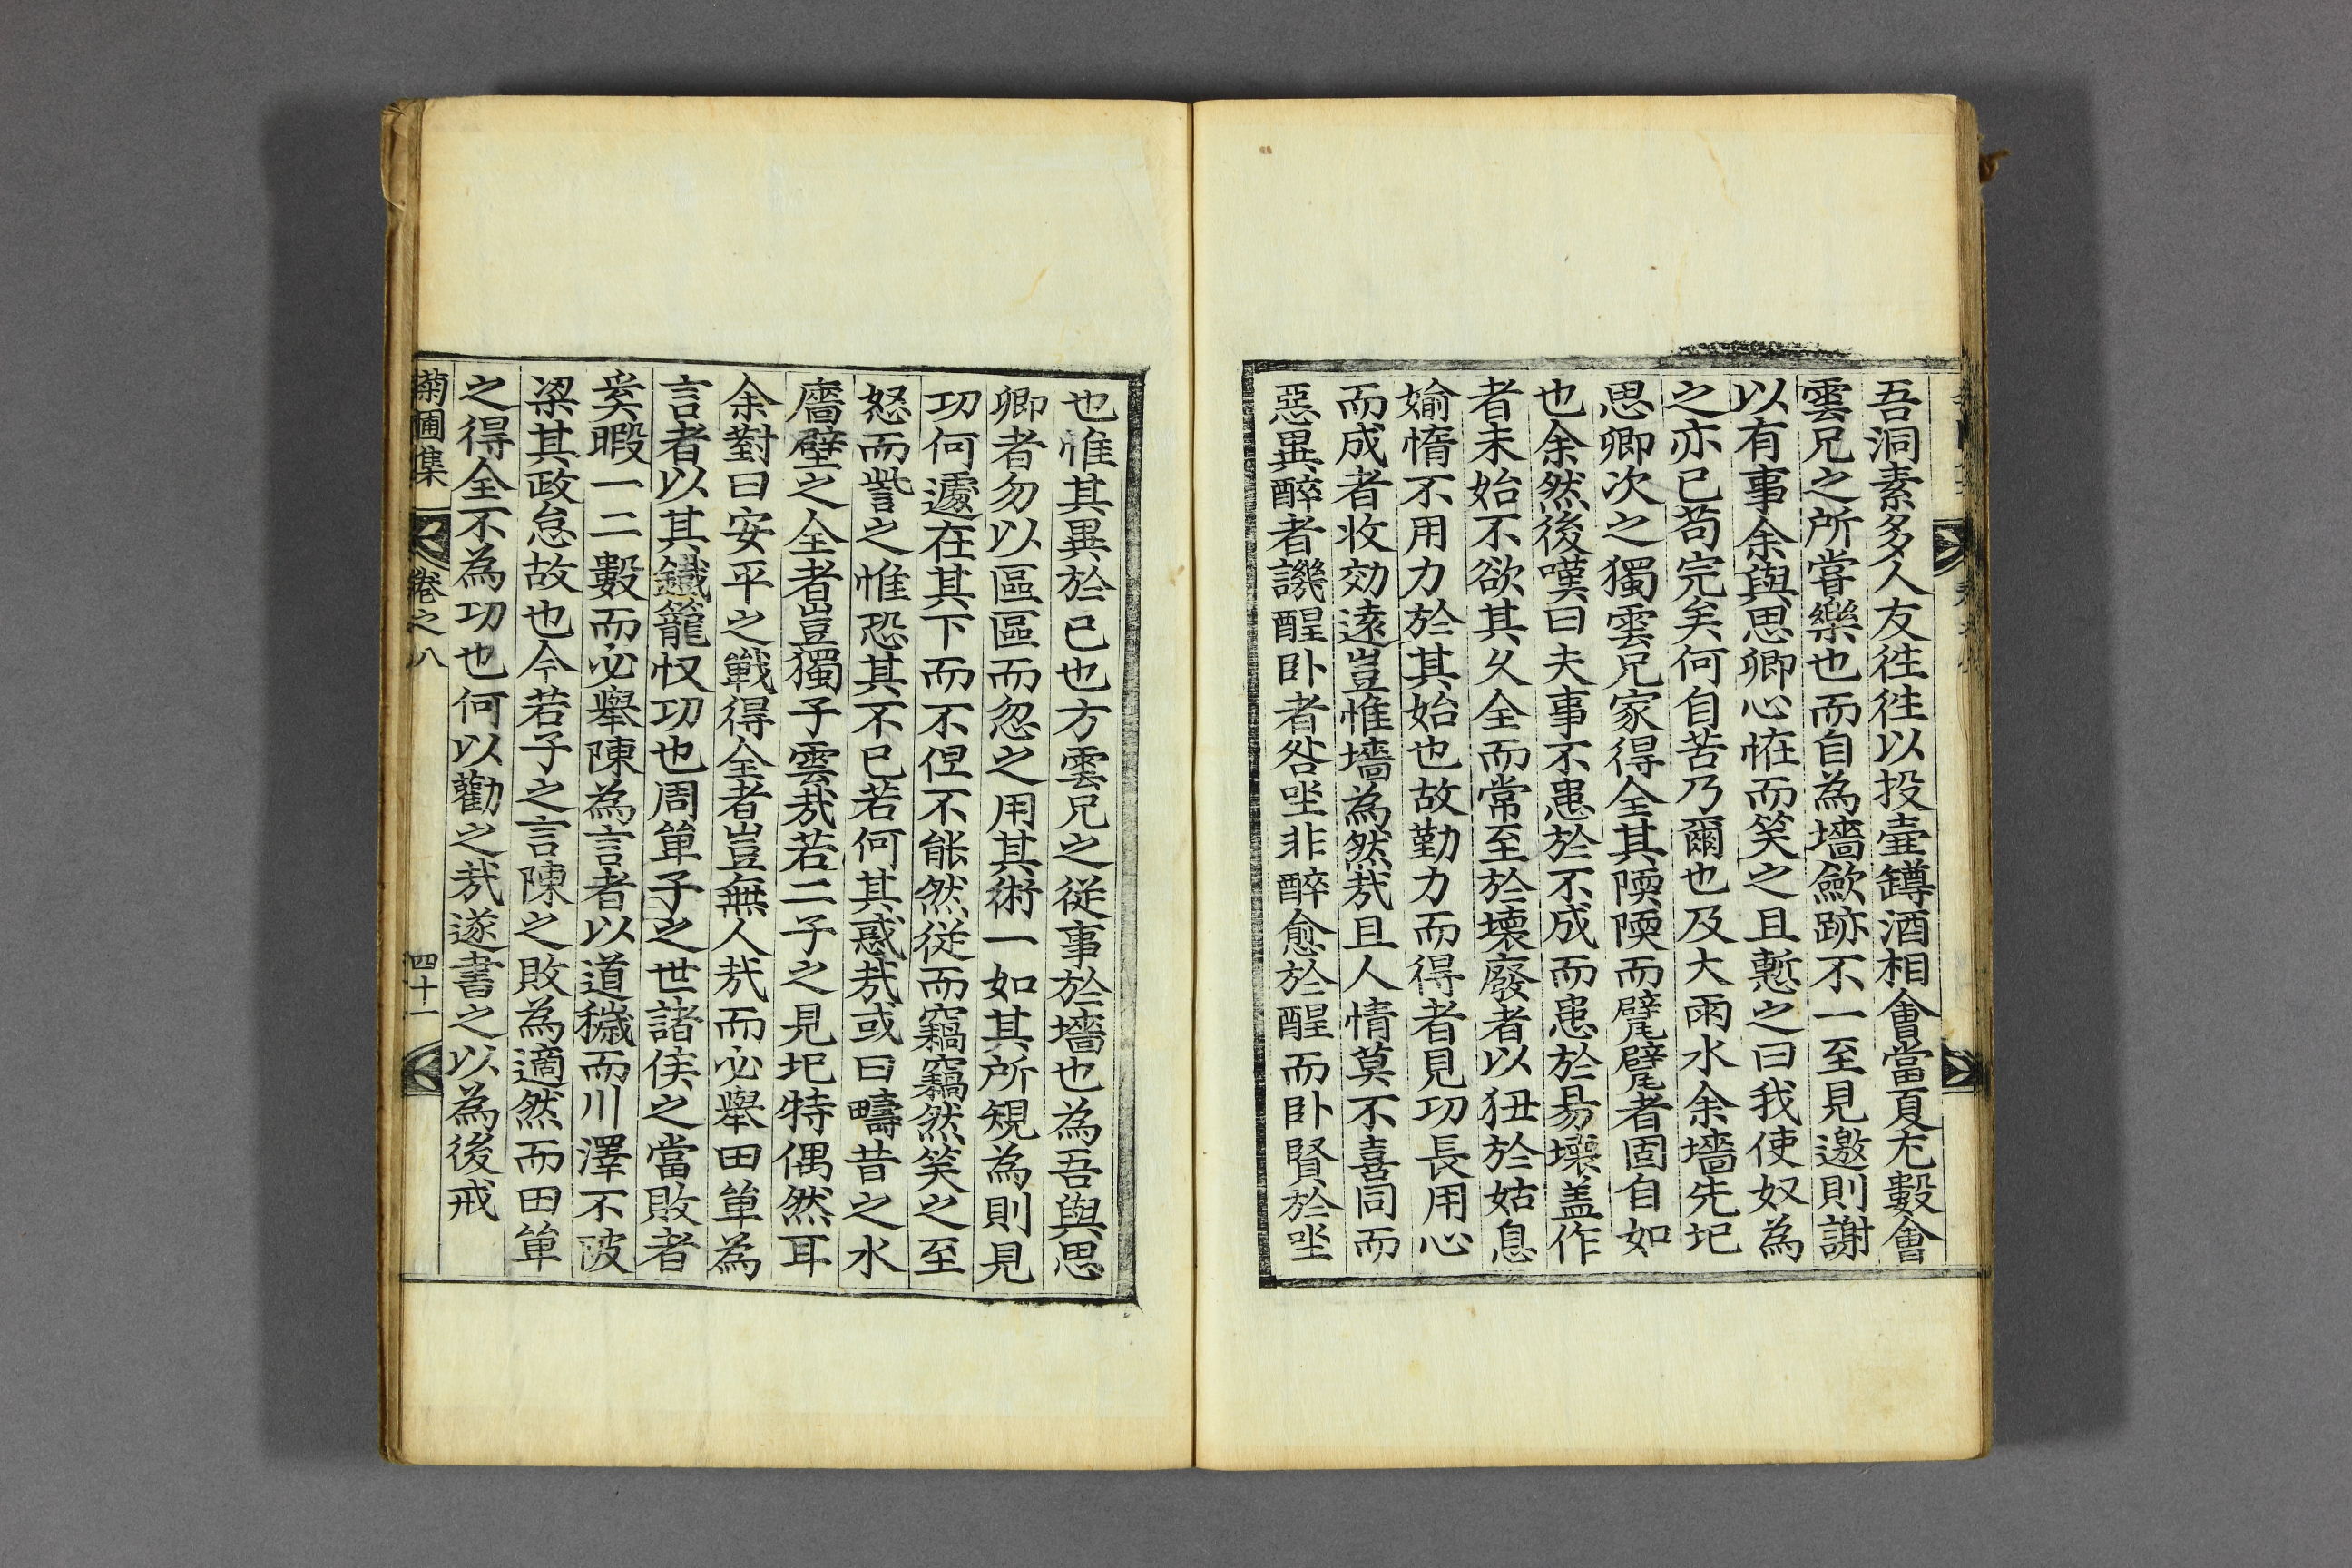 吾洞素多人友徃徃以投壷罇酒相會當夏充數會
雲兄之所嘗樂也而自為墻歛跡不一至見邀則謝
以有事余與思卿心恠而笑之且慙之曰我使奴為
之亦已苟完矣何自苦乃爾也及大雨水余墻先圮
思卿次之獨雲兄家得全其陾陾而躄躄者固自如
也余然後嘆曰夫事不患於不成而患於易壞盖作
者未始不欲其久全而常至於壊廢者以狃於姑息
媮惰不用力於其始也故勤力而得者見功長用心
而成者收効遠豈惟墻為然㢤且人情莫不喜同而
惡異醉者譏醒卧者咎坐非醉愈於醒而卧賢於坐
也惟其異於已也方雲兄之從事於墻也為吾與思
卿者勿以區區而忽之用其術一如其所規為則見
功何遽在其下而不但不能然從而竊竊然笑之至
怒而訾之惟恐其不已若何其惑㢤或曰疇昔之水
廧壁之全者豈獨子雲㢤若二子之見圮特偶然耳
余對曰安平之戰得全者豈無人㢤而必舉田單為
言者以其鐵籠收功也周單子之世諸侯之當敗者
奚暇一二數而必舉陳為言者以道穢而川澤不陂
梁其政怠故也今若子之言陳之敗為適然而田單
之得全不為功也何以勸之㢤遂書之以為後戒
菊圃集
卷之八
四十一